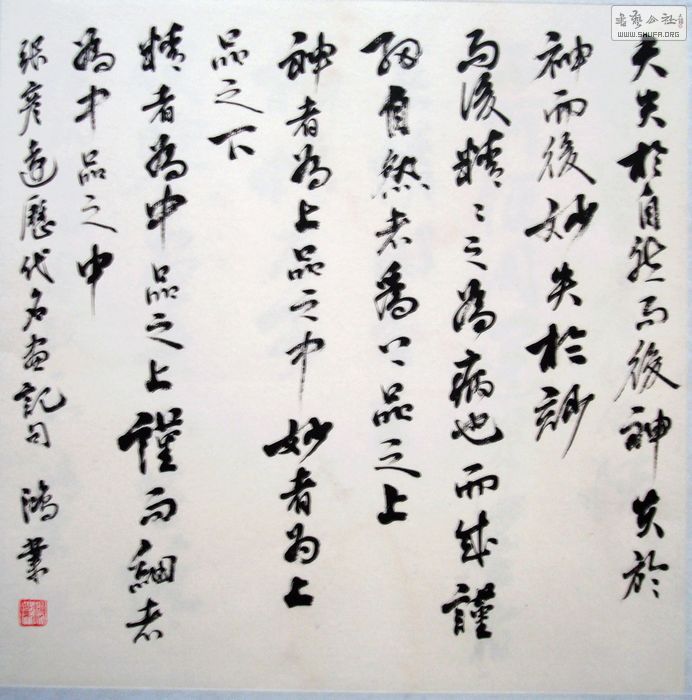 夫失於自然而後神失於
神而後妙失於玅
而後精〻之為病也而成謹
細自然者為上品之上
神者為上品之中妙者為上
品之下
精者為中品之上謹而細者
為中品之中
張彥遠歷代名畫記句 鴻業
書藝公社
WWW.SHUFA.ORG